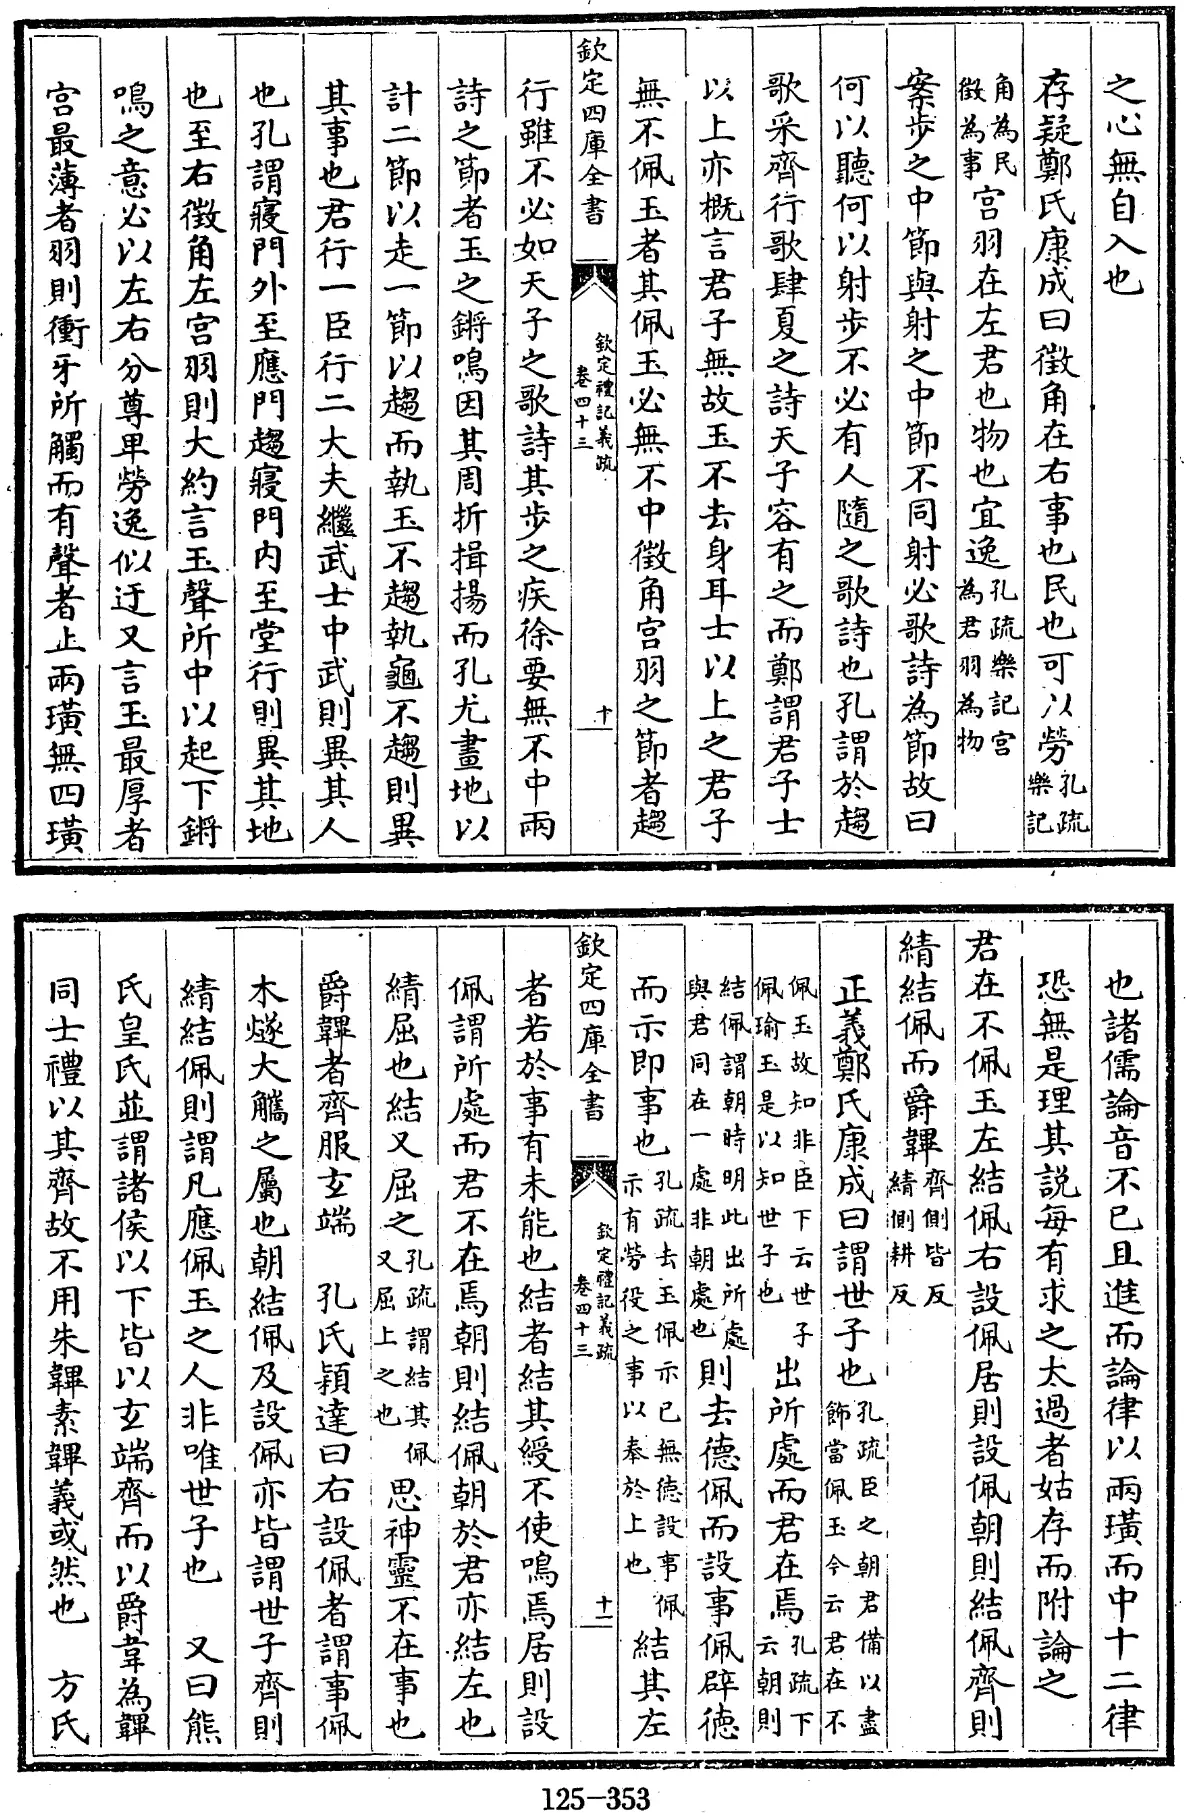 之心無自入也
存疑鄭氏康成曰徵角在右事也民也可以勞孔疏樂記
角為民徵為事宮羽在左君也物也宜逸孔疏樂記宮為君羽為物
案步之中節與射之中節不同射必歌詩為節故曰
何以聽何以射步不必有人隨之歌詩也孔謂於趨
歌采齊行歌肆夏之詩天子容有之而鄭謂君子士
以上亦概言君子無故玉不去身耳士以上之君子
無不佩玉者其佩玉必無不中徵角宮羽之節者趨
欽定四庫全書 欽定禮記義疏 卷四十三 十
行雖不必如天子之歌詩其步之疾徐要無不中兩
詩之節者玉之鏘鳴因其周折揖揚而孔尤畫地以
計二節以走一節以趨而執玉不趨執龜不趨則異
其事也君行一臣行二大夫繼武士中武則異其人
也孔謂寢門外至應門趨寢門內至堂行則異其地
也至右徵角左宮羽則大約言玉聲所中以起下鏘
鳴之意必以左右分尊卑勞逸似迂又言玉最厚者
宮最薄者羽則衝牙所觸而有聲者止兩璜無四璜
也諸儒論音不已且進而論律以兩璜而中十二律
恐無是理其説每有求之太過者姑存而附論之
君在不佩玉左結佩右設佩居則設佩朝則結佩齊則
綪結佩而爵韠齊側皆反綪側耕反
正義鄭氏康成曰謂世子也孔疏臣之朝君備以盡飾當佩玉今云君在不
佩玉故知非臣下云世子佩瑜玉是以知世子也出所處而君在焉孔疏下云朝則
結佩謂朝時明此出所處與君同在一處非朝處也則去德佩而設事佩辟德
而示即事也孔疏去玉佩示已無德設事佩示有勞役之事以奉於上也結其左
欽定四庫全書 欽定禮記義疏 卷四十三 十一
者若於事有未能也結者結其綬不使鳴焉居則設
佩謂所處而君不在焉朝則結佩朝於君亦結左也
綪屈也結又屈之孔疏謂結其佩又屈上之也思神靈不在事也
爵韠者齊服玄端 孔氏穎達曰右設佩者謂事佩
木燧大觿之屬也朝結佩及設佩亦皆謂世子齊則
綪結佩則謂凡應佩玉之人非唯世子也 又曰熊
氏皇氏並謂諸侯以下皆以玄端齊而以爵韋為韠
同士禮以其齊故不用朱韠素韠義或然也 方氏
125-353